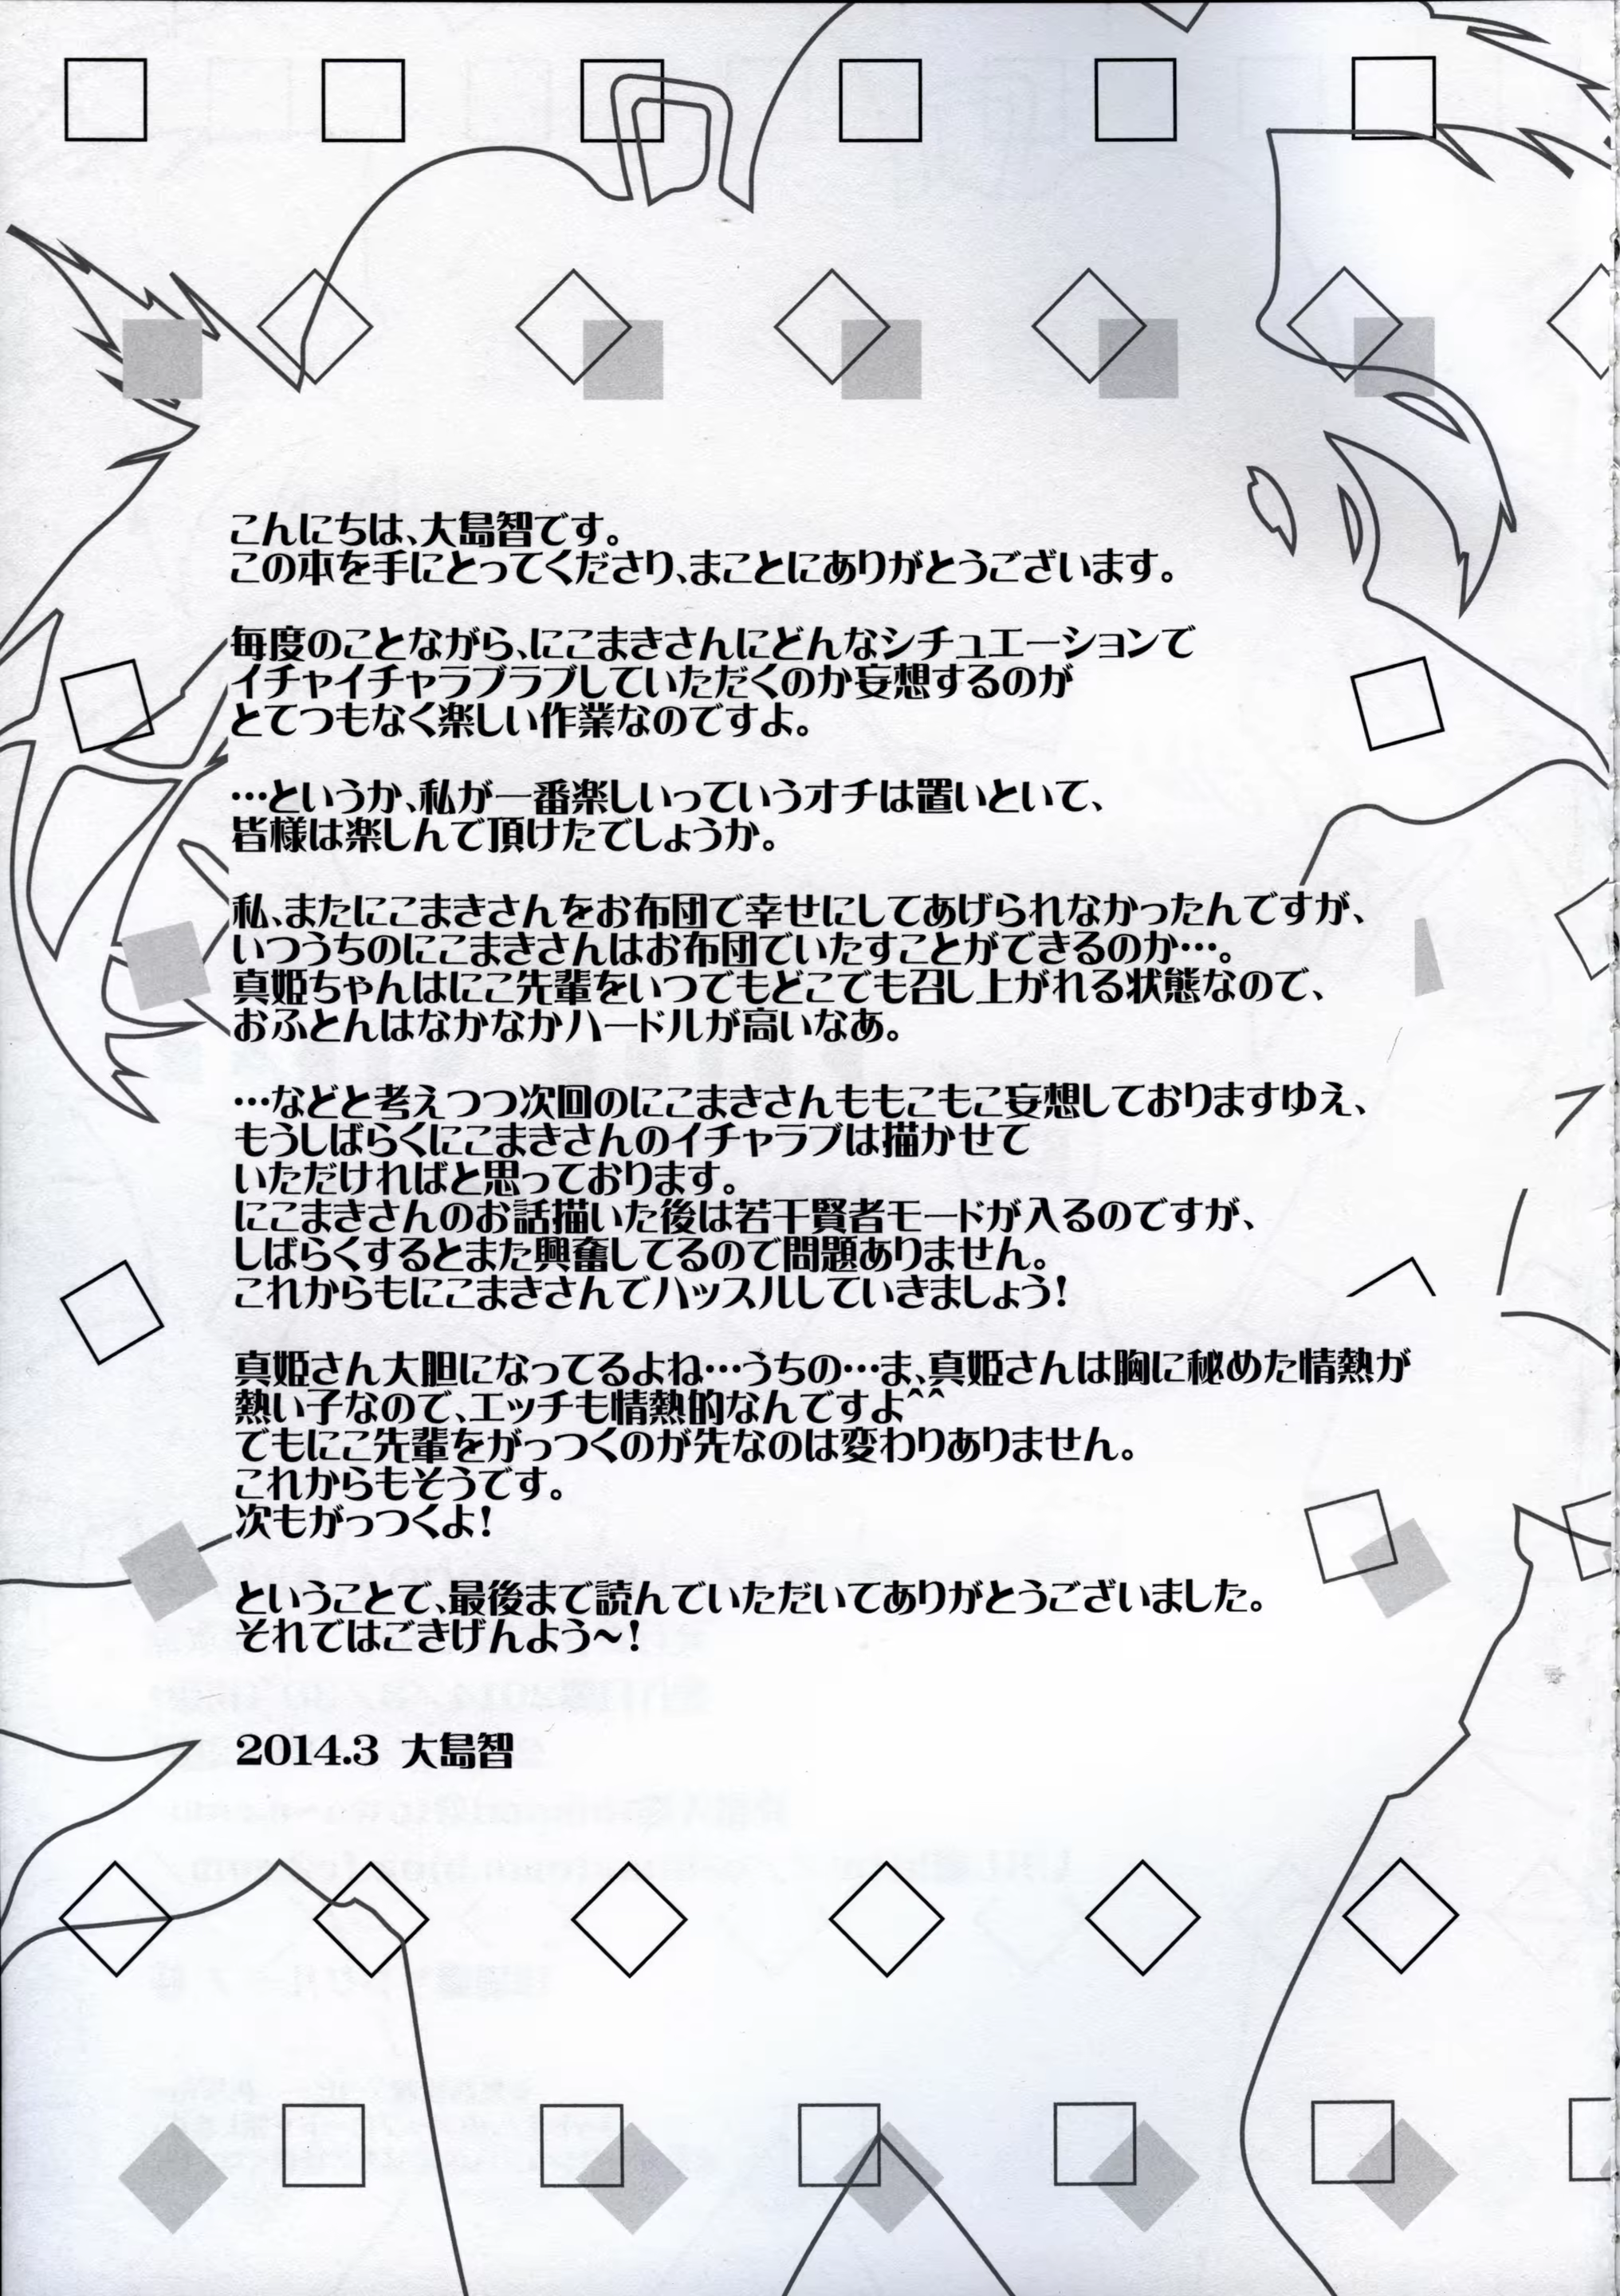 こんにちは、大島智です。
この本を手にとってくださり、まことにありがとうございます。
毎度のことながら、にこまきさんにどんなシチュエーションで
イチャイチャラブラブしていただくのか妄想するのが
とてつもなく楽しい作業なのですよ。
…というか、私が一番楽しいっていうオチは置いといて、
皆様は楽しんで頂けたでしょうか。
私、またにこまきさんをお布団で幸せにしてあげられなかったんですが、
いつうちのにこまきさんはお布団でいたすことができるのか…。
真姫ちゃんはにこ先輩をいつでもどこでも召し上がれる状態なので、
おふとんはなかなかハードルが高いなあ。
…などと考えつつ次回のにこまきさんももこもこ妄想しておりますゆえ、
もうしばらくにこまきさんのイチャラブは描かせて
いただければと思っております。
にこまきさんのお話描いた後は若干賢者モードが入るのですが、
しばらくするとまた興奮してるので問題ありません。
これからもにこまきさんでハッスルしていきましょう!
真姫さん大胆になってるよね…うちの…ま、真姫さんは胸に秘めた情熱が
熱い子なので、エッチも情熱的なんですよ^^
でもにこ先輩をがっつくのが先なのは変わりありません。
これからもそうです。
次もがっつくよ!
ということで、最後まで読んでいただいてありがとうございました。
それではごきげんよう～!
2014.3 大島智